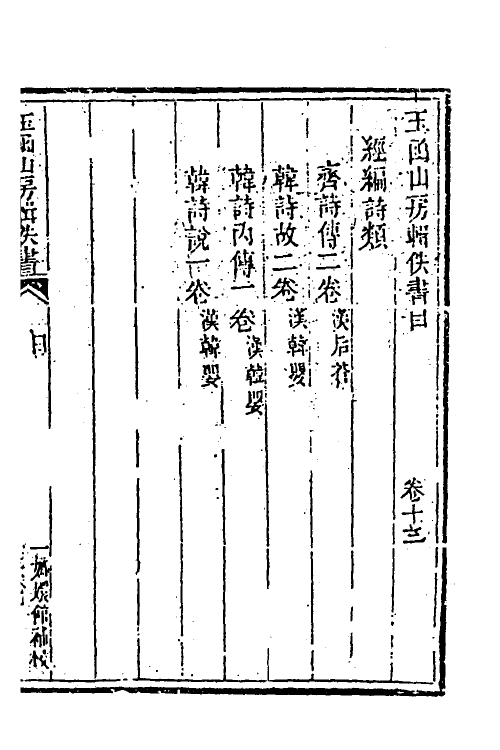 玉函山房輯佚書目　卷十三
經編詩類
齊詩傳二卷 漢后蒼
韓詩故二卷 漢韓嬰
韓詩内傳一卷 漢韓嬰
韓詩説一卷 漢韓嬰
玉函山房輯佚書 目 一 嫏嬛館補校